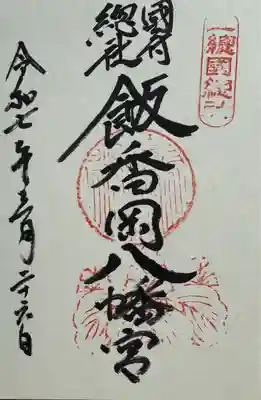 國府
總社
飯香岡八幡宮
令和七年三月二十六日